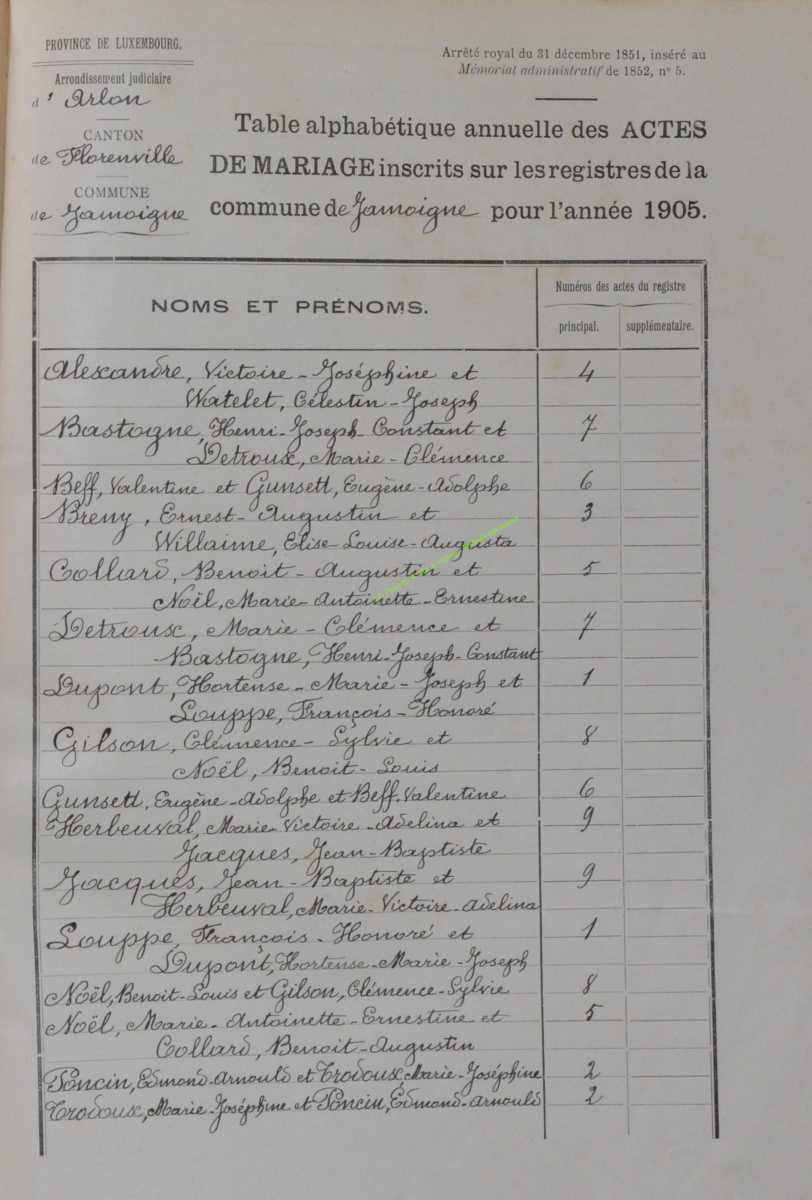 PROVINCE DE LUXEMBOURG.
Arrondissement judiciaire
d'Arlon
CANTON
de Florenville
COMMUNE
de Jamoigne
Arrêté royal du 31 décembre 1851, inséré au
Mémorial administratif de 1852, n° 5.
Table alphabétique annuelle des ACTES
DE MARIAGE inscrits sur les registres de la
commune de Jamoigne pour l'année 1905.
NOMS ET PRÉNOMS.
Numéros des actes du registre
principal. supplémentaire.
Alexandre, Victoire-Joséphine et 4
Watelet, Célestin-Joseph
Bastogne, Henri-Joseph-Constant et 7
Detroux, Marie-Clémence
Beff, Valentine et Gunsett, Eugène-Adolphe 6
Breny, Ernest-Augustin et 3
Willaime, Elise-Louise-Augusta
Collard, Benoit-Augustin et 5
Noël, Marie-Antoinette-Ernestine
Detroux, Marie-Clémence et 7
Bastogne, Henri-Joseph-Constant
Dupont, Hortense-Marie-Joseph et 1
Louppe, François-Honoré
Gilson, Clémence-Sylvie et 8
Noël, Benoit-Louis
Gunsett, Eugène-Adolphe et Beff-Valentine 6
Herbeuval, Marie-Victoire-Adelina et 9
Jacques, Jean-Baptiste
Jacques, Jean-Baptiste et 9
Herbeuval, Marie-Victoire-Adelina
Louppe, François-Honoré et 1
Dupont, Hortense-Marie-Joseph
Noël, Benoit-Louis et Gilson, Clémence-Sylvie 8
Noël, Marie-Antoinette-Ernestine et 5
Collard, Benoit-Augustin
Poncin, Edmond-Arnould et Trodoux, Marie-Joséphine 2
Trodoux, Marie-Joséphine et Poncin, Edmond-Arnould 2